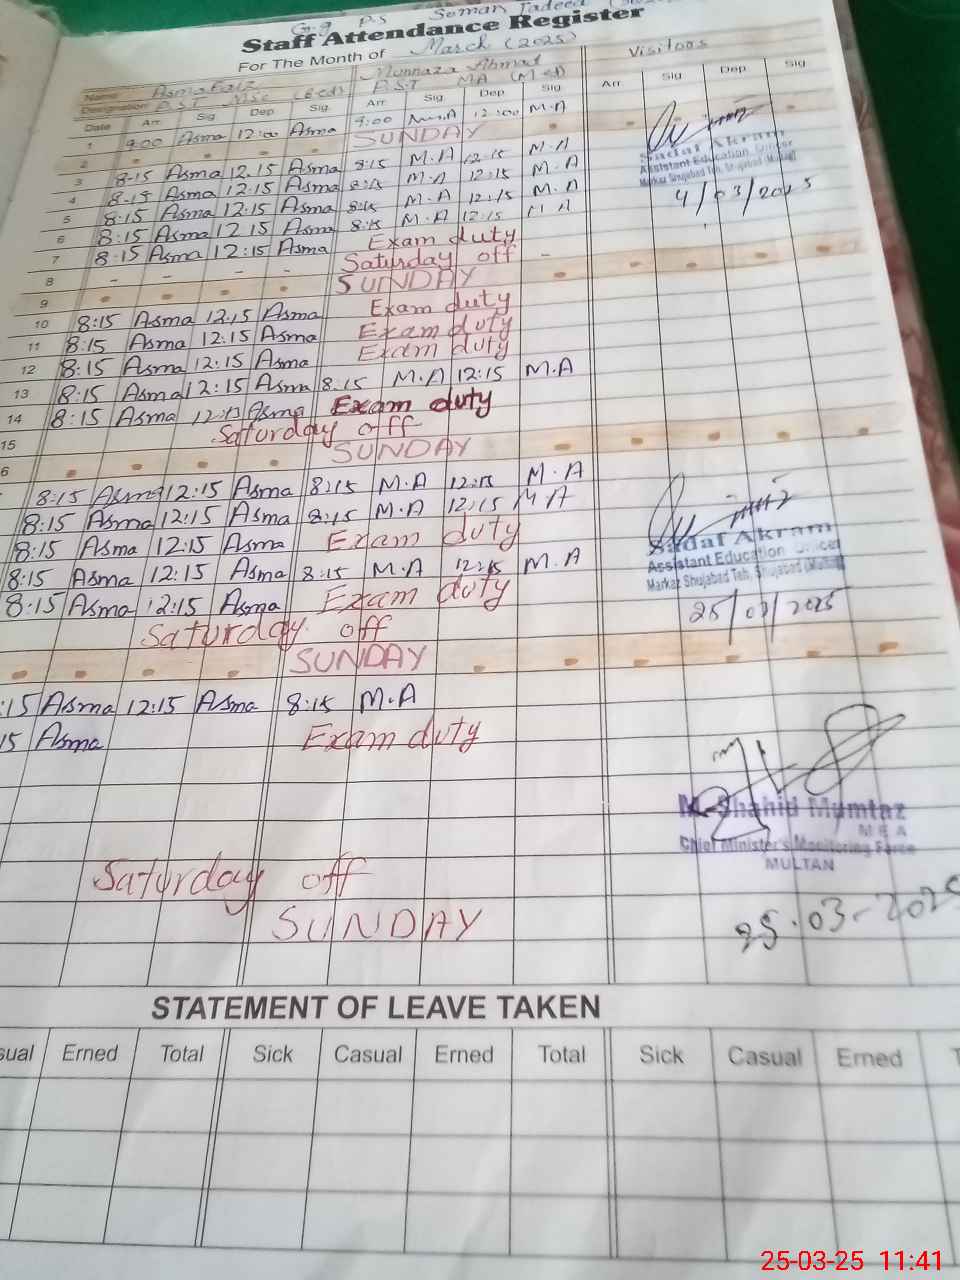 G.g P.S Soman Jadeed
Staff Attendance Register
For The Month of March (2025)
Name Asma Faiz Munnaza Ahmad Visitors
Designation P.S.T MSc (B.ed) P.S.T MA (M.ed)
Date Arr Sig Dep Sig Arr Sig Dep Sig Arr Sig Dep Sig
1 9:00 Asma 12:00 Asma 9:00 M.A 12:00 M.A
2 SUNDAY
3 8-15 Asma 12.15 Asma 8:15 M.A 12:15 M.A
4 8-15 Asma 12:15 Asma 8:15 M.A 12:15 M.A
5 8:15 Asma 12:15 Asma 8:15 M.A 12:15 M.A
6 8:15 Asma 12.15 Asma 8:15 M.A 12:15 M A
7 8:15 Asma 12:15 Asma Exam duty
8 - - - - Saturday off -
9 SUNDAY
10 8:15 Asma 12:15 Asma Exam duty
11 8:15 Asma 12:15 Asma Exam duty
12 8:15 Asma 12:15 Asma Exam duty
13 8:15 Asma 12:15 Asma 8:15 M.A 12:15 M.A
14 8:15 Asma 12:15 Asma Exam duty
15 Saturday off
6 SUNDAY
8:15 Asma 12:15 Asma 8:15 M.A 12:15 M.A
8:15 Asma 12:15 Asma 8:15 M.A 12:15 M A
8:15 Asma 12:15 Asma Exam duty
8:15 Asma 12:15 Asma 8:15 M.A 12:15 M.A
8:15 Asma 12:15 Asma Exam duty
Saturday off
SUNDAY
:15 Asma 12:15 Asma 8:15 M.A
15 Asma Exam duty
Saturday off
SUNDAY
Sadaf Akram
Assistant Education Officer
Markaz Shujabad Teh, Shujabad (Multan)
4/03/2025
Sadaf Akram
Assistant Education Officer
Markaz Shujabad Teh, Shujabad (Multan)
25/03/2025
M. Shahid Mumtaz
MEA
Chief Minister's Monitoring Force
MULTAN
25-03-2025
STATEMENT OF LEAVE TAKEN
sual Erned Total Sick Casual Erned Total Sick Casual Erned T
25-03-25 11:41